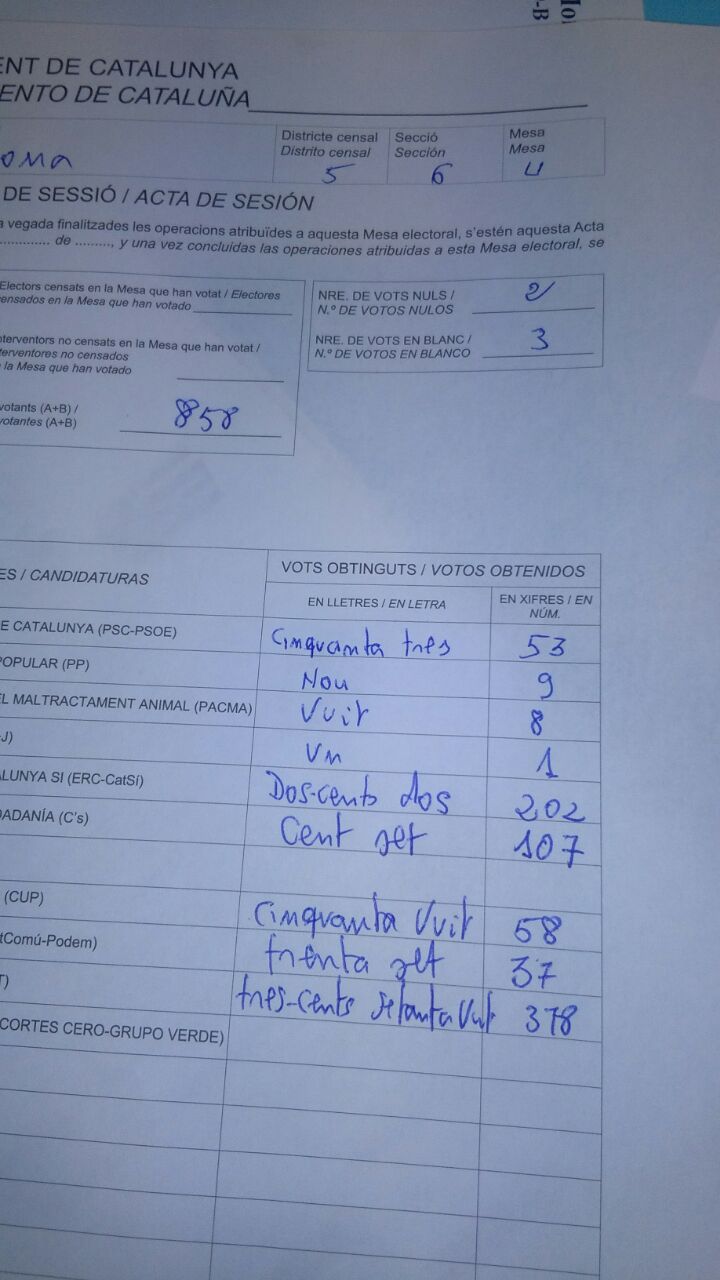 ENT DE CATALUNYA
ENTO DE CATALUÑA
ona
Districte censal
Distrito censal
5
Secció
Sección
6
Mesa
Mesa
U
DE SESSIÓ / ACTA DE SESIÓN
a vegada finalitzades les operacions atribuïdes a aquesta Mesa electoral, s'estén aquesta Acta
............. de ........., y una vez concluidas las operaciones atribuidas a esta Mesa electoral, se
Electors censats en la Mesa que han votat / Electores
censados en la Mesa que han votado
nterventors no censats en la Mesa que han votat /
terventores no censados
la Mesa que han votado
votants (A+B) /
votantes (A+B)
858
NRE. DE VOTS NULS /
N.º DE VOTOS NULOS
2
NRE. DE VOTS EN BLANC /
N.º DE VOTOS EN BLANCO
3
ES / CANDIDATURAS
VOTS OBTINGUTS / VOTOS OBTENIDOS
EN LLETRES / EN LETRA
EN XIFRES / EN
NÚM.
E CATALUNYA (PSC-PSOE) Cinquanta tres 53
POPULAR (PP) Nou 9
EL MALTRACTAMENT ANIMAL (PACMA) Vuit 8
J) Un 1
ALUNYA SI (ERC-CatSí) Dos-cents dos 202
DADANÍA (C's) Cent set 107
(CUP) Cinquanta Vuit 58
tComú-Podem) trenta set 37
T) tres-cents setanta Vuit 378
CORTES CERO-GRUPO VERDE)